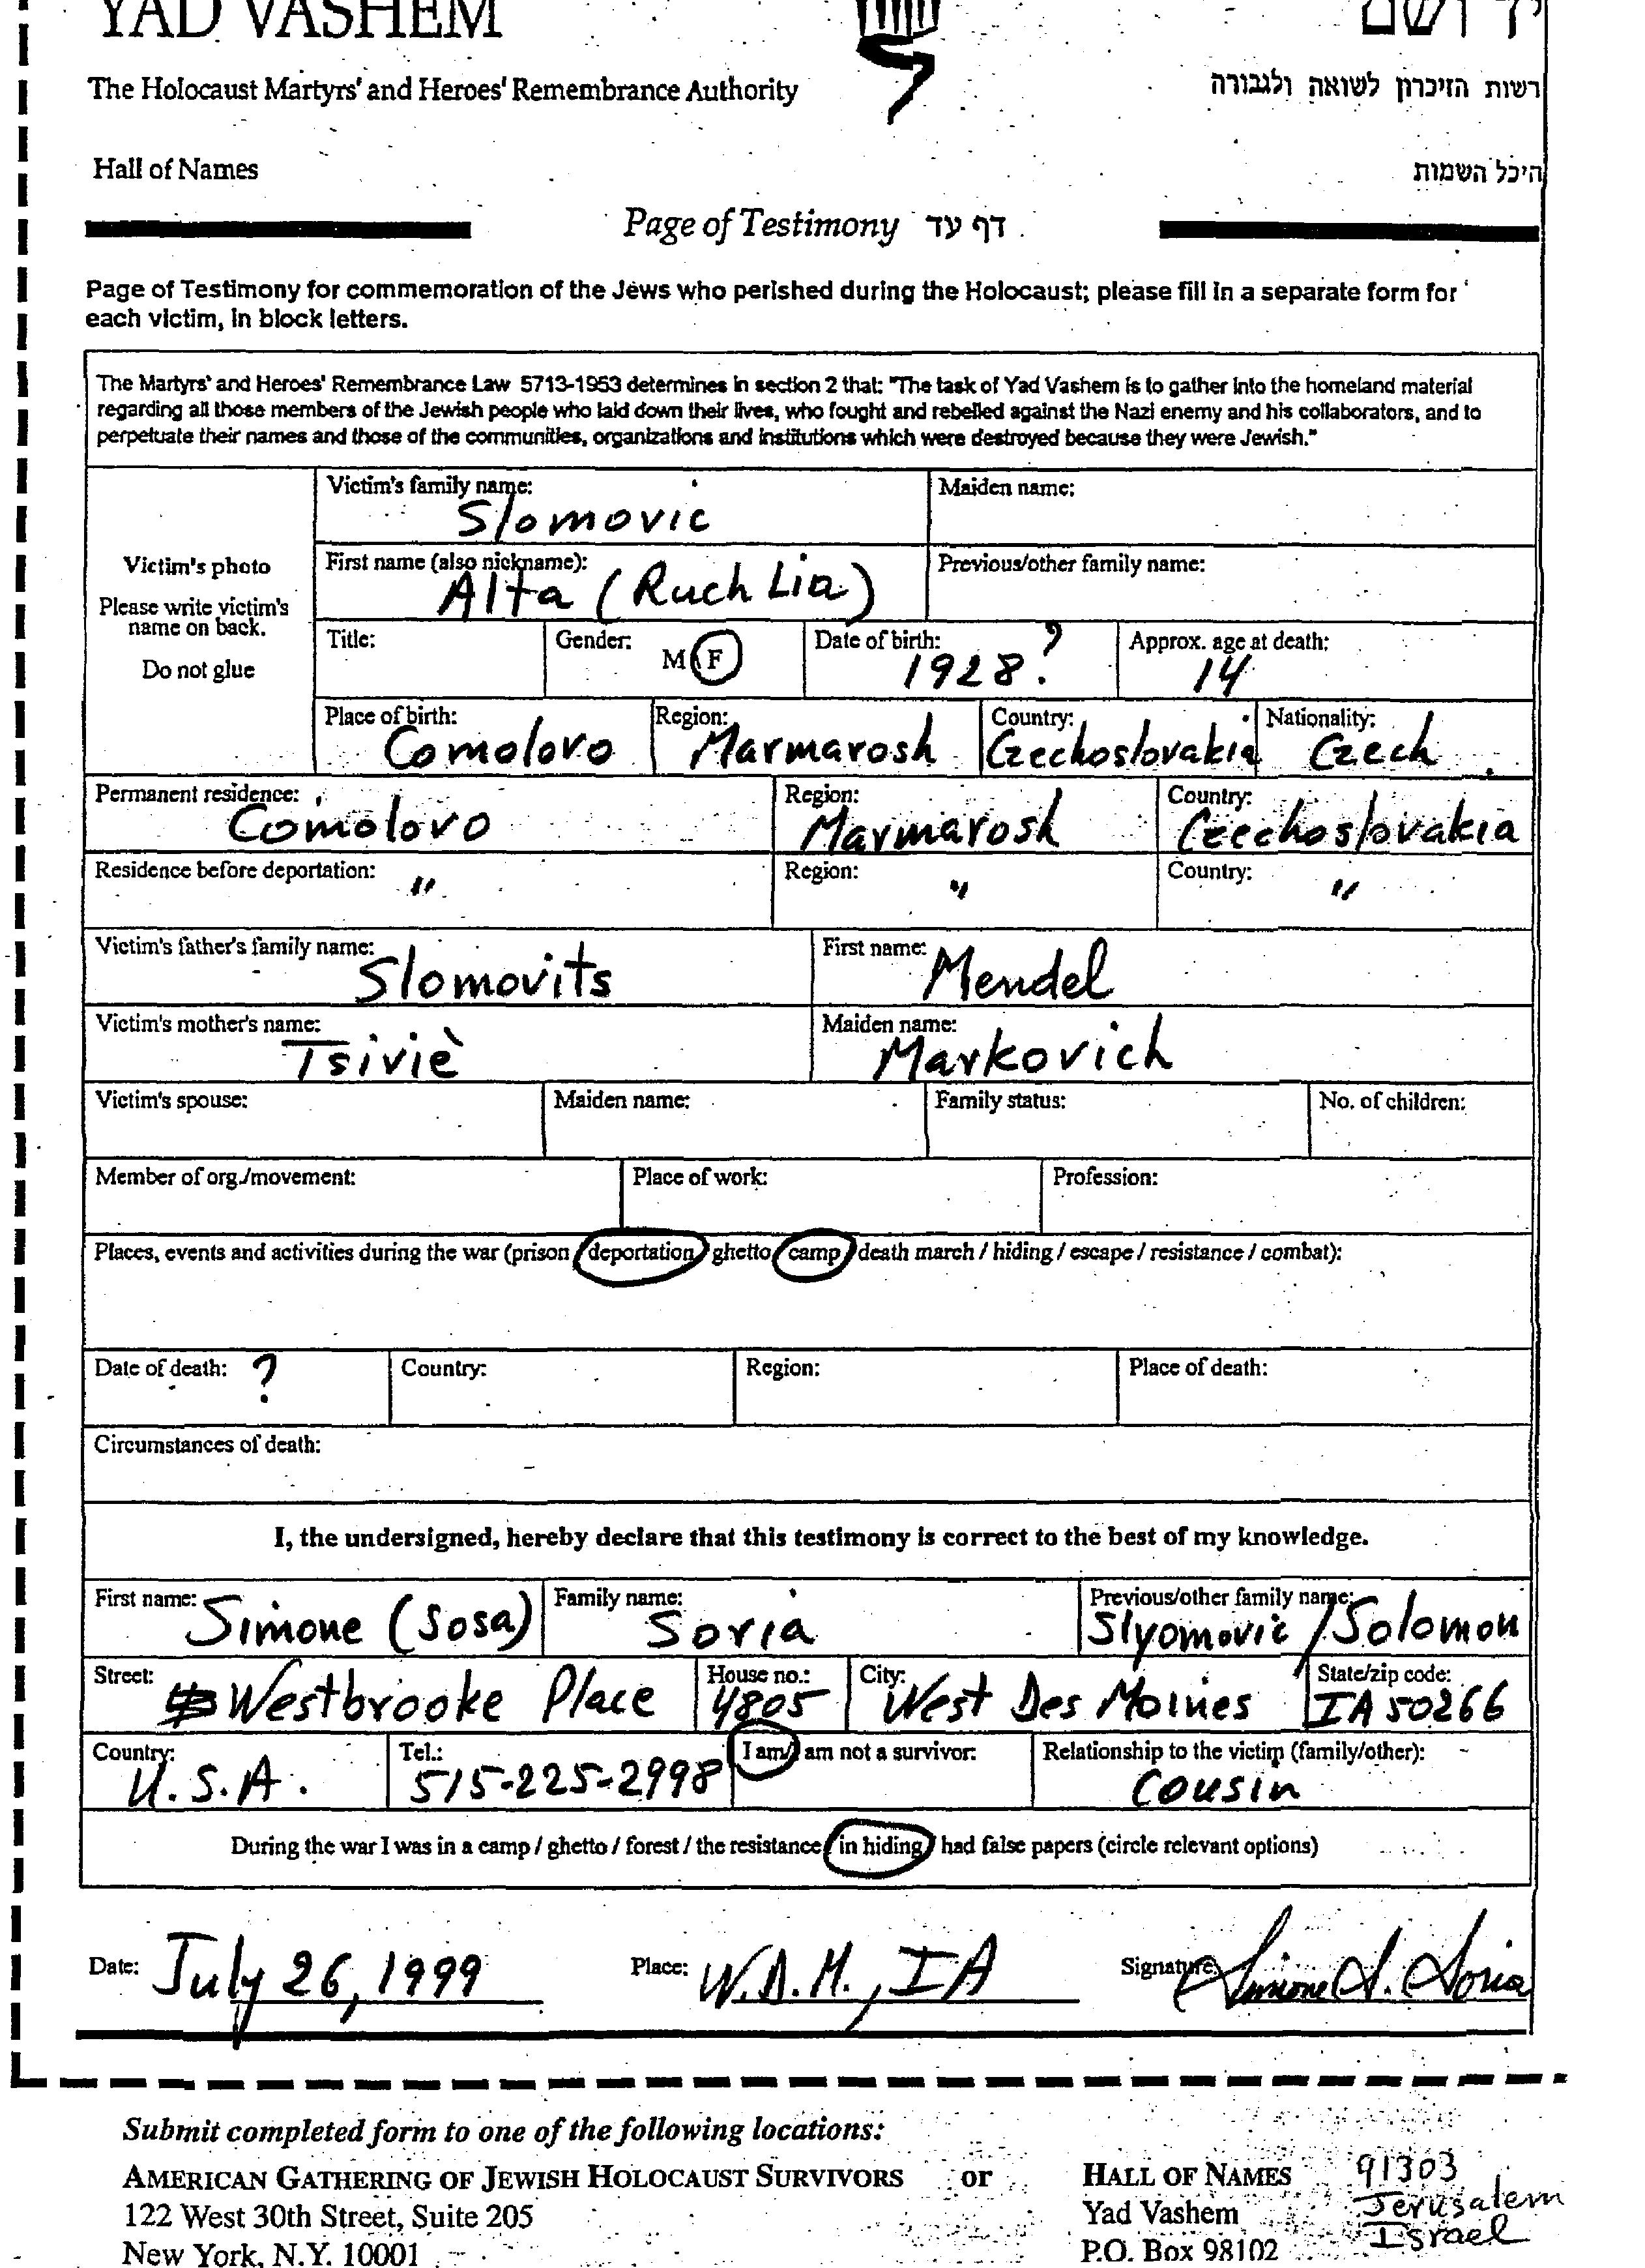 YAD VASHEM יד ושם
The Holocaust Martyrs' and Heroes' Remembrance Authority רשות הזיכרון לשואה ולגבורה
Hall of Names היכל השמות
Page of Testimony דף עד
Page of Testimony for commemoration of the Jews who perished during the Holocaust; please fill in a separate form for
each victim, in block letters.
The Martyrs' and Heroes' Remembrance Law 5713-1953 determines in section 2 that: "The task of Yad Vashem is to gather into the homeland material
regarding all those members of the Jewish people who laid down their lives, who fought and rebelled against the Nazi enemy and his collaborators, and to
perpetuate their names and those of the communities, organizations and institutions which were destroyed because they were Jewish."
Victim's photo
Please write victim's
name on back.
Do not glue
Victim's family name: Slomovic Maiden name:
First name (also nickname): Alta (Ruch Lia) Previous/other family name:
Title: Gender: M F Date of birth: 1928? Approx. age at death: 14
Place of birth: Comolovo Region: Marmarosh Country: Czechoslovakia Nationality: Czech
Permanent residence: Comolovo Region: Marmarosh Country: Czechoslovakia
Residence before deportation: " Region: " Country: "
Victim's father's family name: Slomovits First name: Mendel
Victim's mother's name: Tsiviè Maiden name: Markovich
Victim's spouse: Maiden name: Family status: No. of children:
Member of org./movement: Place of work: Profession:
Places, events and activities during the war (prison / deportation / ghetto / camp / death march / hiding / escape / resistance / combat):
Date of death: ? Country: Region: Place of death:
Circumstances of death:
I, the undersigned, hereby declare that this testimony is correct to the best of my knowledge.
First name: Simone (Sosa) Family name: Soria Previous/other family name: Slyomovic / Solomon
Street: Westbrooke Place House no.: 4805 City: West Des Moines State/zip code: IA 50266
Country: U.S.A. Tel.: 515-225-2998 I am / am not a survivor: Relationship to the victim (family/other): Cousin
During the war I was in a camp / ghetto / forest / the resistance / in hiding / had false papers (circle relevant options)
Date: July 26, 1999 Place: W.D.M., IA Signature: Simone S. Soria
Submit completed form to one of the following locations:
AMERICAN GATHERING OF JEWISH HOLOCAUST SURVIVORS or HALL OF NAMES 91303
122 West 30th Street, Suite 205 Yad Vashem Jerusalem
New York, N.Y. 10001 P.O. Box 98102 Israel